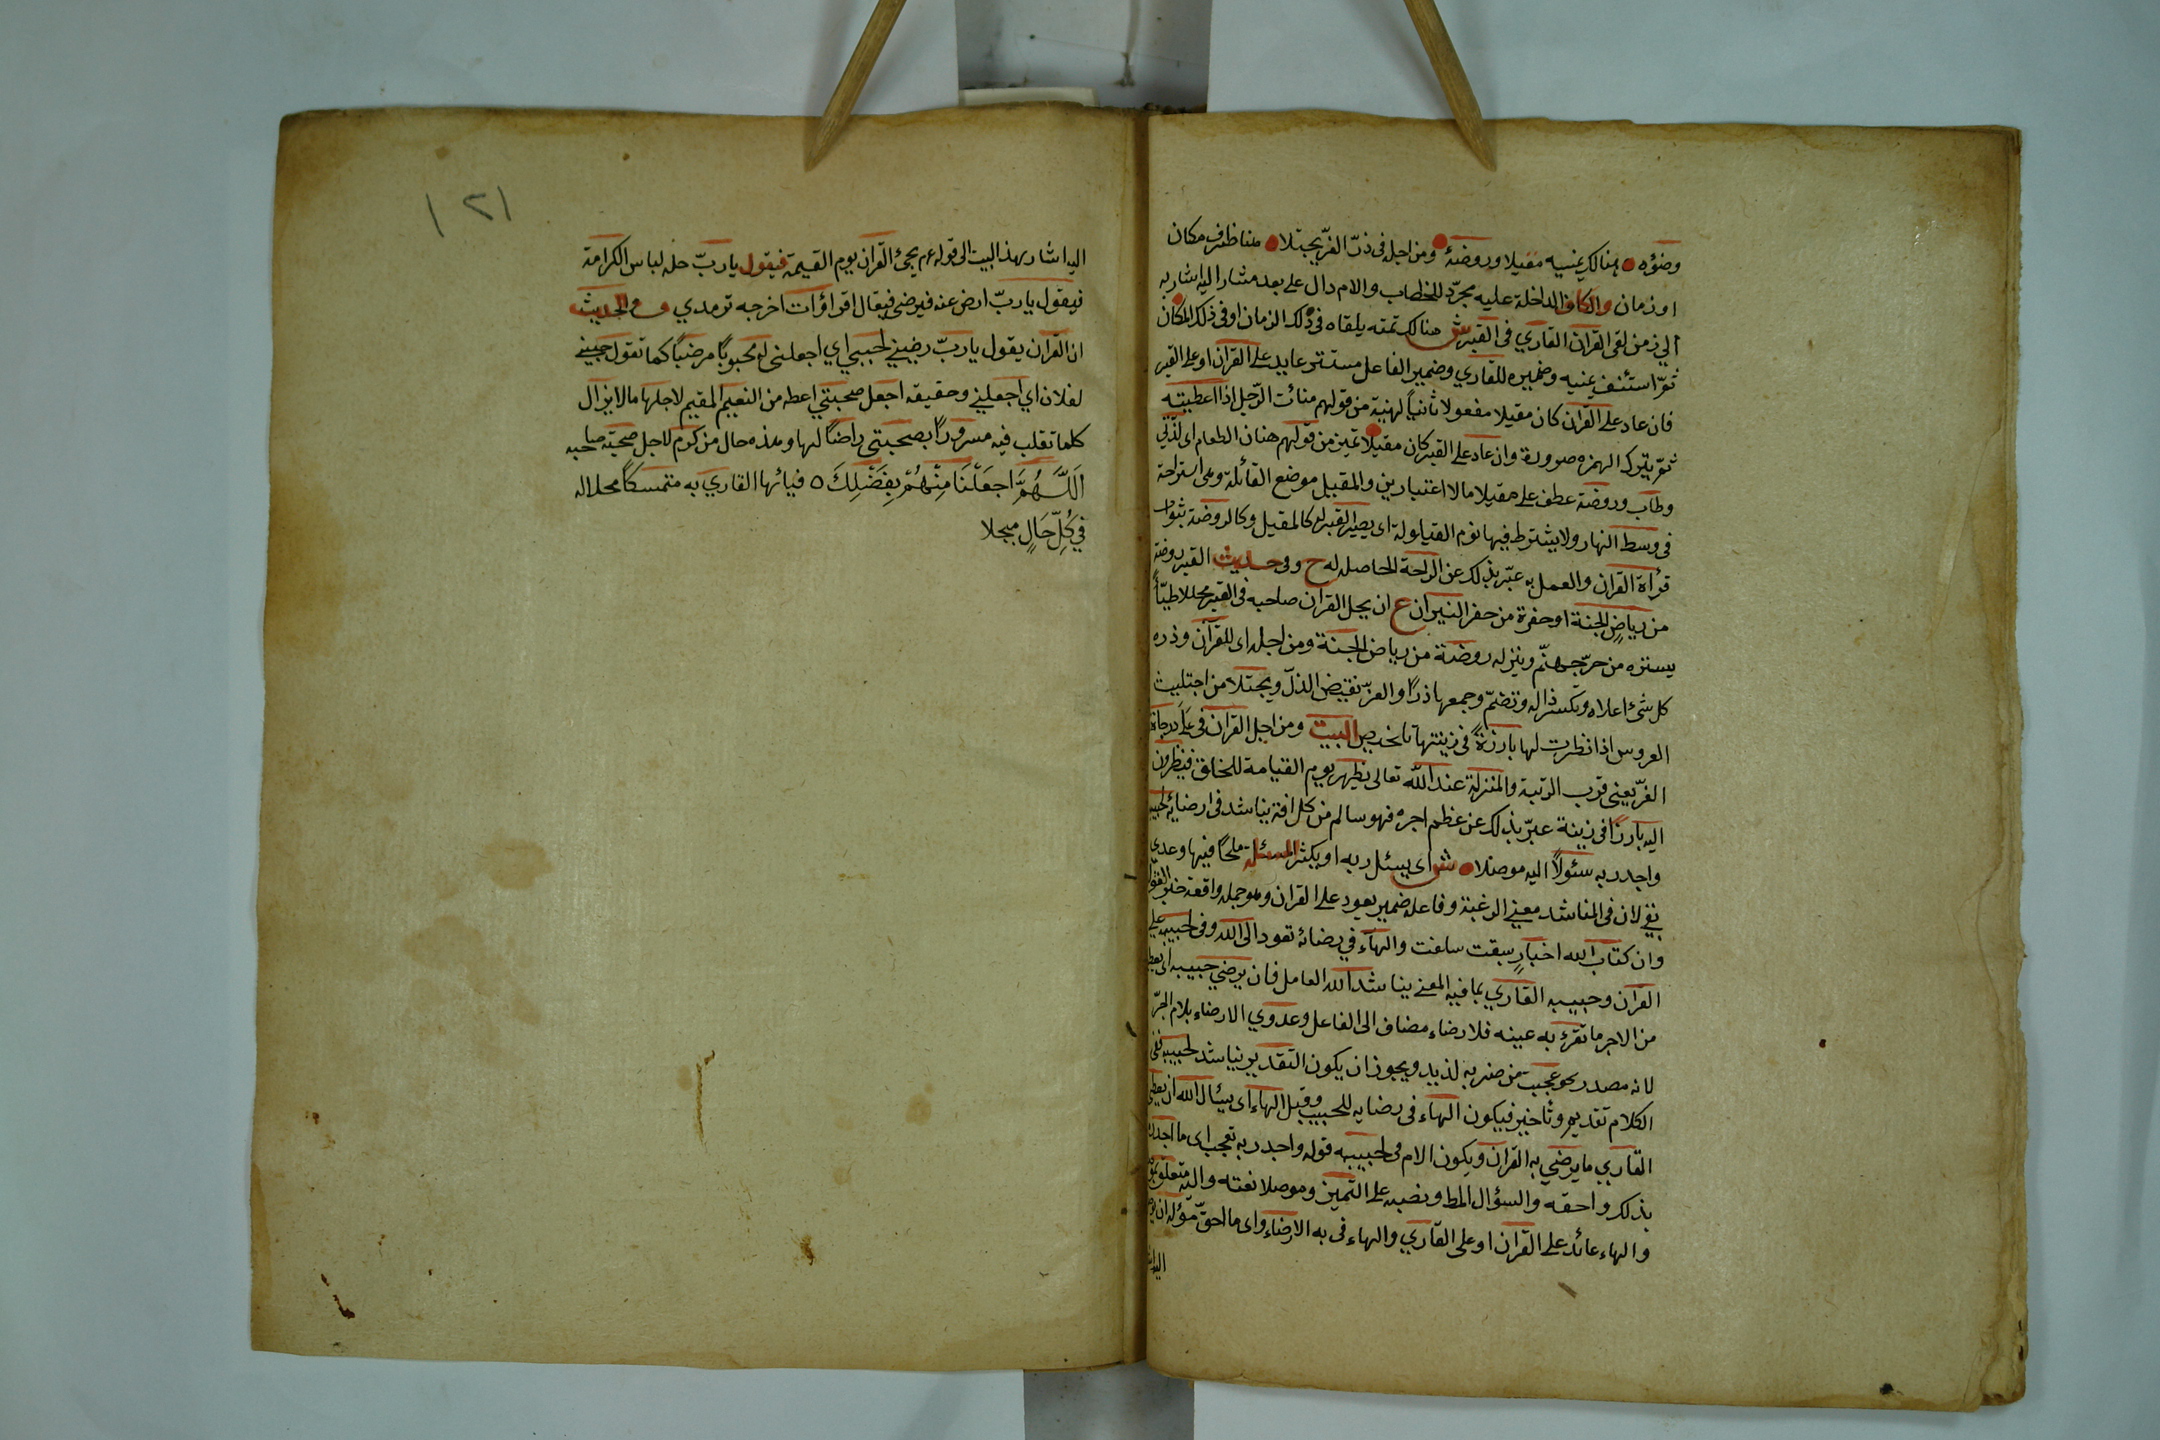 وضوؤه هنالك يهنيه مقيلا وروضة ومن اجله فى ذرّ العزّ يجتلا هنا ظرف مكان
او زمان والكاف الداخلة عليه مجرّد للخطاب والام دال على بعد مشار اليه اشار به
الي زمن لقى القران القاري فى القبر ش هنالك تمته يلقاه فى ذلك الزمان او فى ذلك المكان
ثمّ استئنف يهنيه وضميره للقاري وضمير الفاعل مستتر عايد على القران او على القبر
فان عاد على القرن كان مقيلا مفعولا ثانياً لهنيه من قولهم منائت الرّجل اذا اعطيته
ثمّ بترك الهمزه صورة وان عاد على القبر كان مقيلا تميز من قولهم هنان الطعام اى لذّلي
وطاب وروضة عطف على مقيلا مالا اعتبارين والمقيل موضع القائلة وهى استراحة
فى وسط النهار ولا يشترط فيها نوم القيلولة اى يصير القبر له كالمقيل وكالروضة بثواب
قرأة القران والعمل به عبّر بذلك عن الراحة الحاصله له ح وفى حديث القبر روضة
من رياض الجنة او حفرة من حفر النيران ع ان يحل القران صاحبه فى القبر محلا طيّباً
يستره من حرّ جهنّم وينزله روضة من رياض الجنة ومن اجله اى للقرآن وذره
كل شئ اعلاه وتكسر ذاله وتضمّ وجمعها ذراً والعزّ نقيض الذلّ ويجتلا من اجتليت
العروس اذا نظرت لها بارزة فى زينتها تلخيص البيت ومن اجل القران فى على درجاة
العزّ يعنى قرب الرتبة والمنزلة عند الله تعالى يظهر يوم القيامة للخلق فينظرون
اليه بارزاً فى زينة عبّر بذلك عن عظم اجره فهو سالم من كل افة يناشد فى ارضائه لحبيبه
واجدر به سئولاً اليه موصلا ش اى يسئل ربه او يكثر المسئلة ملحاً فيها وعدى
بفي لان فى المناشد معني الرغبة وفاعله ضمير يعود على القران وهو جمله واقعة خبر لقوله
وان كتاب الله اخبار سبقت سلفت والهآء في رضائه تعود الى الله وفى لحبيبه على
القرآن وحبيبه القاري بما فيه المعني يناشد الله العامل فان يرضي حبيبه اى يعطيه
من الاجر ما تقرّ به عينه فلا رضاء مضاف الى الفاعل وعدوي الارضاء بلام الجرّ
لانه مصدر نحو عجبت من ضربه لذيد ويجوز ان يكون التقدير يناشد لحبيبه ففى
الكلام تقديم وتأخير فيكون الهاء فى رضايه للحبيب وقيل الهاء اى يسئال الله ان يعطى
القاري ما يرضي به القران ويكون الام فى لحبيبه قوله واجدر به تعجب اى ما اجدره
بذلك واحقه والسؤال المط ونصبه على التميز وموصلا نعته واليه متعلق به
والهاء عائد على القران او على القاري والهاء فى به الارضاء واى ما احقّ سؤله ان
اليه اشار بهذا البيت الى قوله عم يجئ القران يوم القيمة فيقول يا ربّ حله لباس الكرامة
فيقول يا ربّ ارض عنه فيرضي فيقال اقرأ وأرق اخرجه ترمدي وفى الحديث
ان القران يقول يا ربّ رضيني لحبيبي اي اجعلنى له محبوبًا مرضيًا كما تقول حببني
لفلان اي اجعليني وحقيقه اجعل صحبتي اعطه من النعيم المقيم لاجلها مالا يزال
كلما تقلب فيه مسرورًا بصحبتي راضيًا لها وهذه حال من كرم لاجل صحبة صاحبه
اَللَّهُمَّ اجعَلْنَا مِنْهُمْ بِفَضْلِكَ ٥ فيائها القاري به متمسكاً مجلا له
فِي كُلِّ حَالٍ مبجلا
١٢١